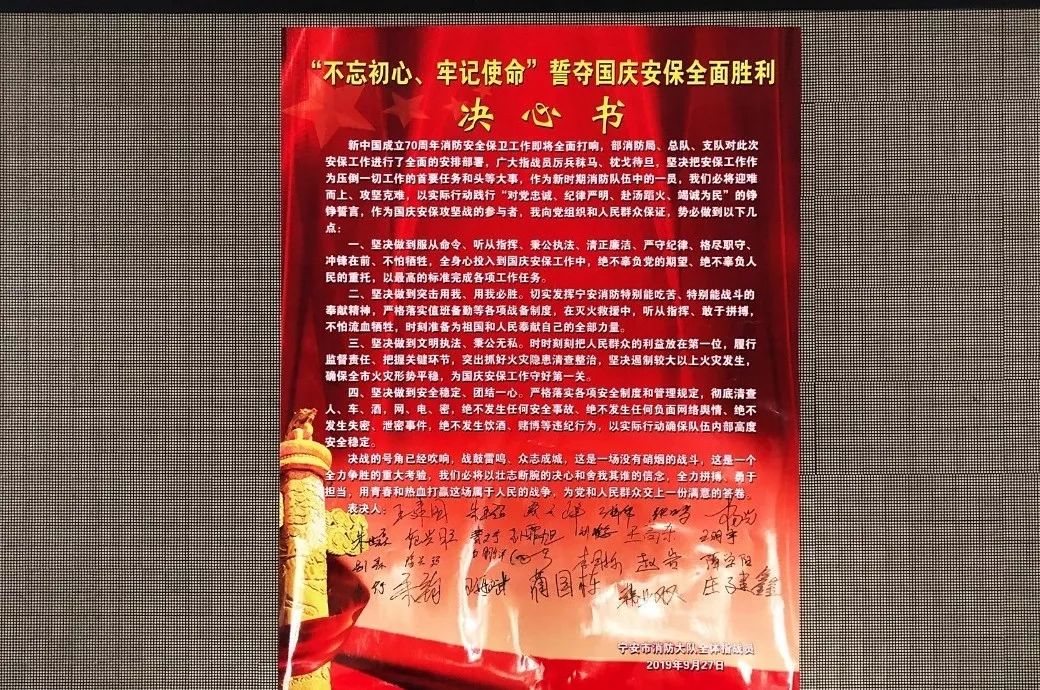 “不忘初心、牢记使命”誓夺国庆安保全面胜利
决心书
新中国成立70周年消防安全保卫工作即将全面打响，部消防局、总队、支队对此次
安保工作进行了全面的安排部署，广大指战员厉兵秣马、枕戈待旦，坚决把安保工作作
为压倒一切工作的首要任务和头等大事，作为新时期消防队伍中的一员，我们必将迎难
而上、攻坚克难，以实际行动践行“对党忠诚、纪律严明、赴汤蹈火、竭诚为民”的铮
铮誓言，作为国庆安保攻坚战的参与者，我向党组织和人民群众保证，势必做到以下几
点：
一、坚决做到服从命令、听从指挥、秉公执法、清正廉洁、严守纪律、恪尽职守、
冲锋在前、不怕牺牲，全身心投入到国庆安保工作中，绝不辜负党的期望、绝不辜负人
民的重托，以最高的标准完成各项工作任务。
二、坚决做到突击用我、用我必胜。切实发挥宁安消防特别能吃苦、特别能战斗的
奉献精神，严格落实值班备勤等各项战备制度，在灭火救援中，听从指挥、敢于拼搏，
不怕流血牺牲，时刻准备为祖国和人民奉献自己的全部力量。
三、坚决做到文明执法、秉公无私。时时刻刻把人民群众的利益放在第一位，履行
监督责任、把握关键环节，突出抓好火灾隐患清查整治，坚决遏制较大以上火灾发生，
确保全市火灾形势平稳，为国庆安保工作守好第一关。
四、坚决做到安全稳定、团结一心。严格落实各项安全制度和管理规定，彻底清查
人、车、酒，网、电、密，绝不发生任何安全事故、绝不发生任何负面网络舆情、绝不
发生失密、泄密事件，绝不发生饮酒、赌博等违纪行为，以实际行动确保队伍内部高度
安全稳定。
决战的号角已经吹响，战鼓雷鸣、众志成城，这是一场没有硝烟的战斗，这是一个
全力争胜的重大考验，我们必将以壮志断腕的决心和舍我其谁的信念，全力拼搏、勇于
担当，用青春和热血打赢这场属于人民的战争，为党和人民群众交上一份满意的答卷。
表决人：
王尚东
赵岩
蒲国栋
庄建鑫
宁安市消防大队全体指战员
2019年9月27日